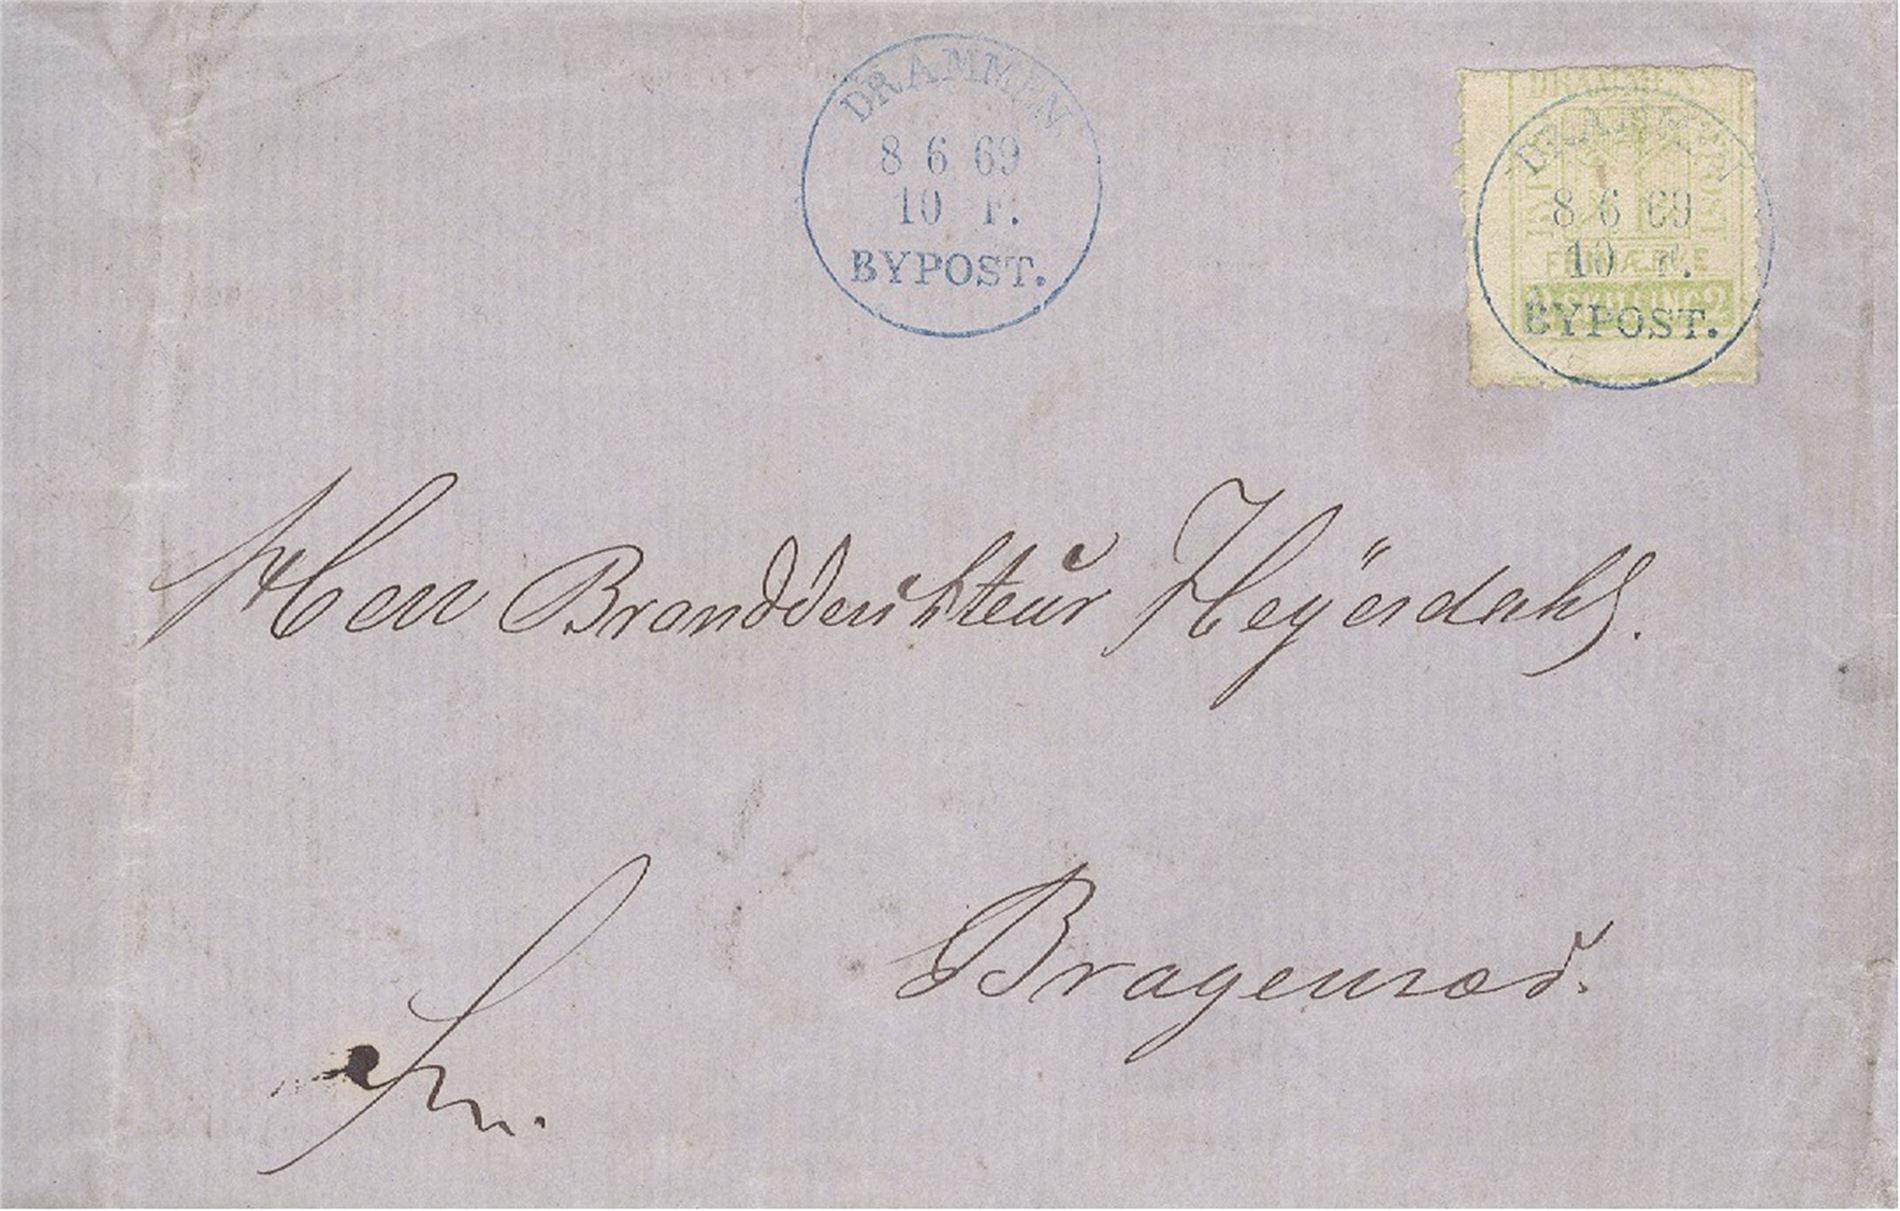 DRAMMEN
8 6 69
10 F.
BYPOST.
DRAMMENS
BYPOST
FRIMÆRKE
2 SKILLING 2
DRAMMEN
8 6 69
10 F.
BYPOST.
Herr Branddirekteur Heyerdahl.
Bragernæs.
fr.